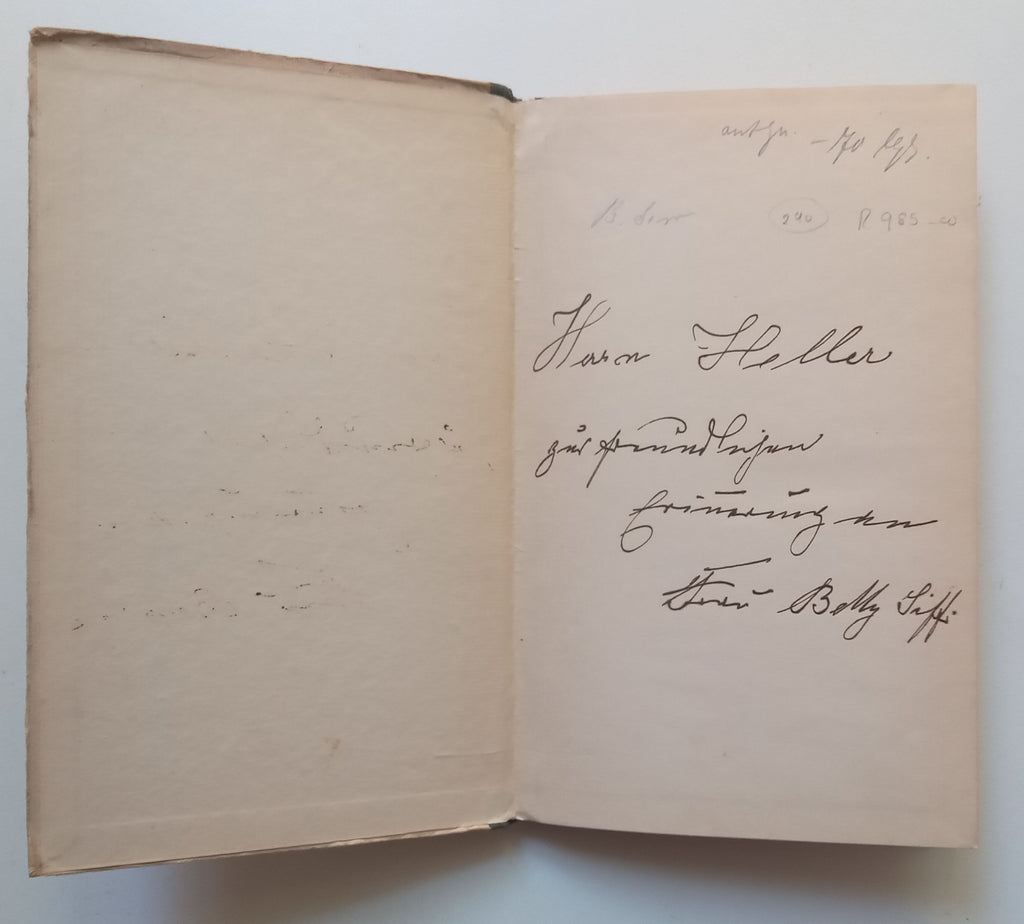 antqu. -70
290 R 985-00
Herrn Heller
zur freundlichen
Erinnerung an
Frau Betty